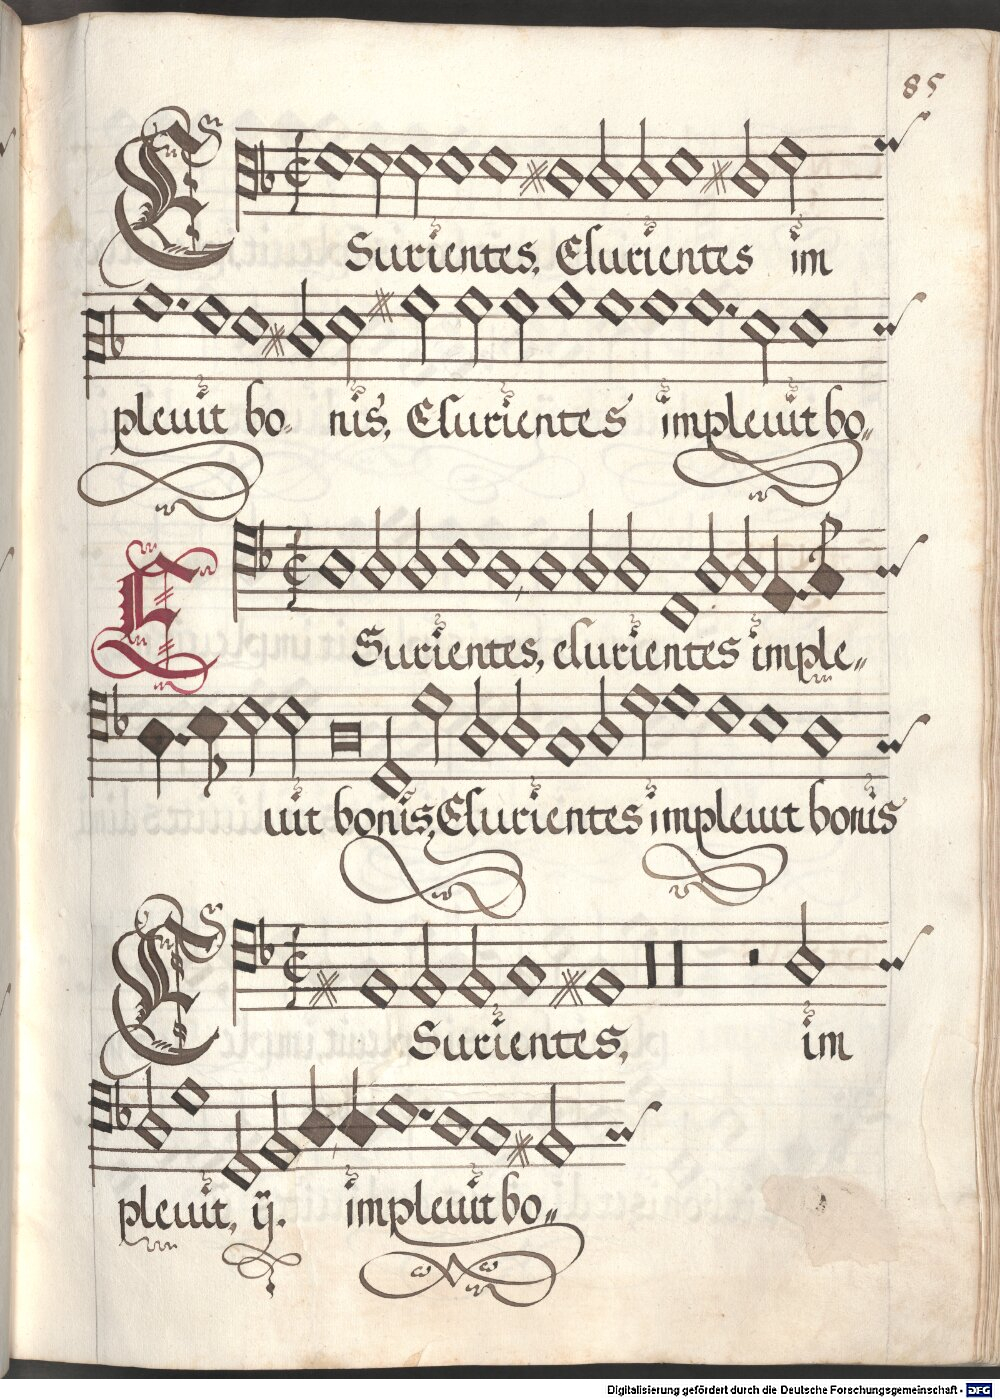 85
ESurientes, Esurientes im
pleuit bo- nis, Esurientes impleuit bo„
ESurientes, esurientes imple„
uit bonis, Esurientes impleuit bonis
ESurientes, im
pleuit, ij. impleuit bo„
Digitalisierung gefördert durch die Deutsche Forschungsgemeinschaft - DFG